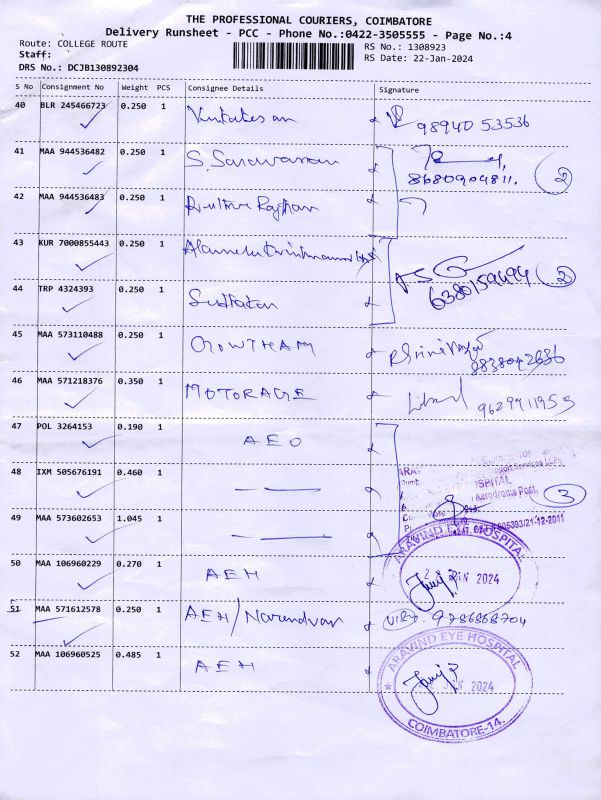 THE PROFESSIONAL COURIERS, COIMBATORE
Delivery Runsheet - PCC - Phone No.:0422-3505555 - Page No.:4
Route: COLLEGE ROUTE RS No.: 1308923
Staff: RS Date: 22-Jan-2024
DRS No.: DCJB130892304
S No Consignment No Weight PCS Consignee Details Signature
40 BLR 245466723 0.250 1 Venkatesan 98940 53536
41 MAA 944536482 0.250 1 S. Saravanan 8680904811. 2
42 MAA 944536483 0.250 1
43 KUR 7000855443 0.250 1 6380159694 2
44 TRP 4324393 0.250 1
45 MAA 573110488 0.250 1 GOWTHAM 8838042686
46 MAA 571218376 0.350 1 MOTORAGE 9629911953
47 POL 3264153 0.190 1 AEO
48 IXM 505676191 0.460 1 HOSPITAL Aerodrome Post, 3
49 MAA 573602653 1.045 1 21-12-2011
ARAVIND EYE HOSPITAL
50 MAA 106960229 0.270 1 AEH 2024
51 MAA 571612578 0.250 1 AEH/Narendran 9786868704
ARAVIND EYE HOSPITAL
52 MAA 106960525 0.485 1 AEH 2024
COIMBATORE-14.